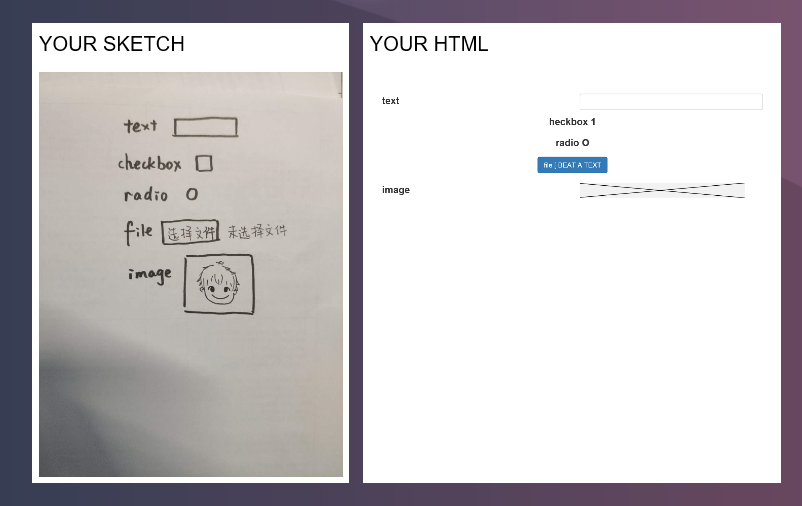 YOUR SKETCH
text
checkbox
radio O
file 选择文件 未选择文件
image
YOUR HTML
text
heckbox 1
radio O
file [ BEAT A TEXT
image